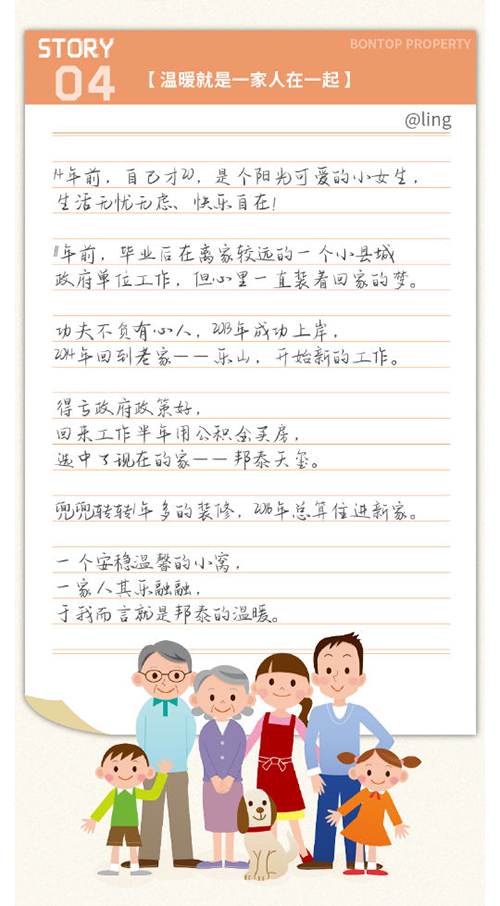 STORY
BONTOP PROPERTY
04
【 温暖就是一家人在一起 】
@ling
14年前，自己才20，是个阳光可爱的小女生，
生活无忧无虑、快乐自在！
11年前，毕业后在离家较远的一个小县城
政府单位工作，但心里一直装着回家的梦。
功夫不负有心人，2013年成功上岸，
2014年回到老家——乐山，开始新的工作。
得亏政府政策好，
回来工作半年用公积金买房，
选中了现在的家——邦泰天玺。
兜兜转转1年多的装修，2016年总算住进新家。
一个安稳温馨的小窝，
一家人其乐融融，
于我而言就是邦泰的温暖。